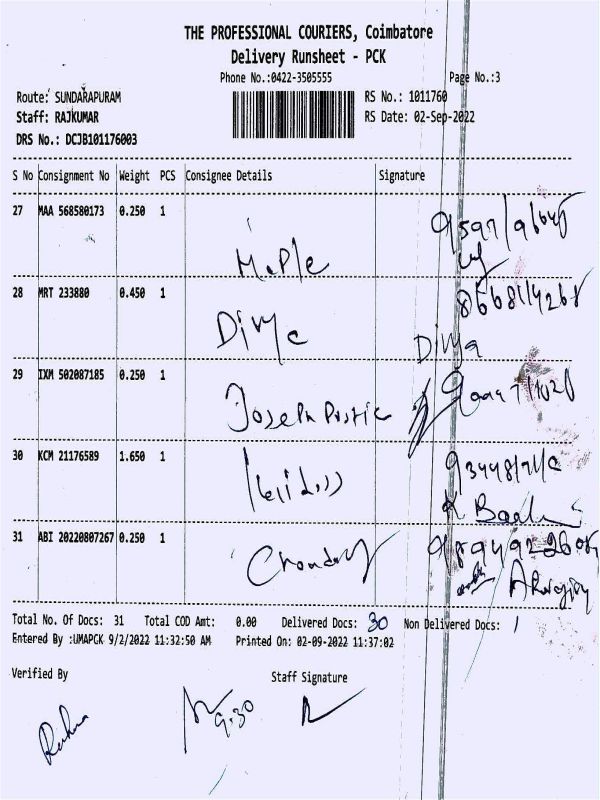 THE PROFESSIONAL COURIERS, Coimbatore
Delivery Runsheet - PCK
Phone No.:0422-3505555 Page No.:3
Route: SUNDARAPURAM RS No.: 1011760
Staff: RAJKUMAR RS Date: 02-Sep-2022
DRS No.: DCJB101176003
S No Consignment No Weight PCS Consignee Details Signature
27 MAA 568580173 0.250 1
Maple
28 MRT 233880 0.450 1
Divya
29 IXM 502087185 0.250 1
Joseph
30 KCM 21176589 1.650 1
K
31 ABI 20220807267 0.250 1
Total No. Of Docs: 31 Total COD Amt: 0.00 Delivered Docs: 30 Non Delivered Docs: 1
Entered By :UMAPCK 9/2/2022 11:32:50 AM Printed On: 02-09-2022 11:37:02
Verified By Staff Signature
9:30